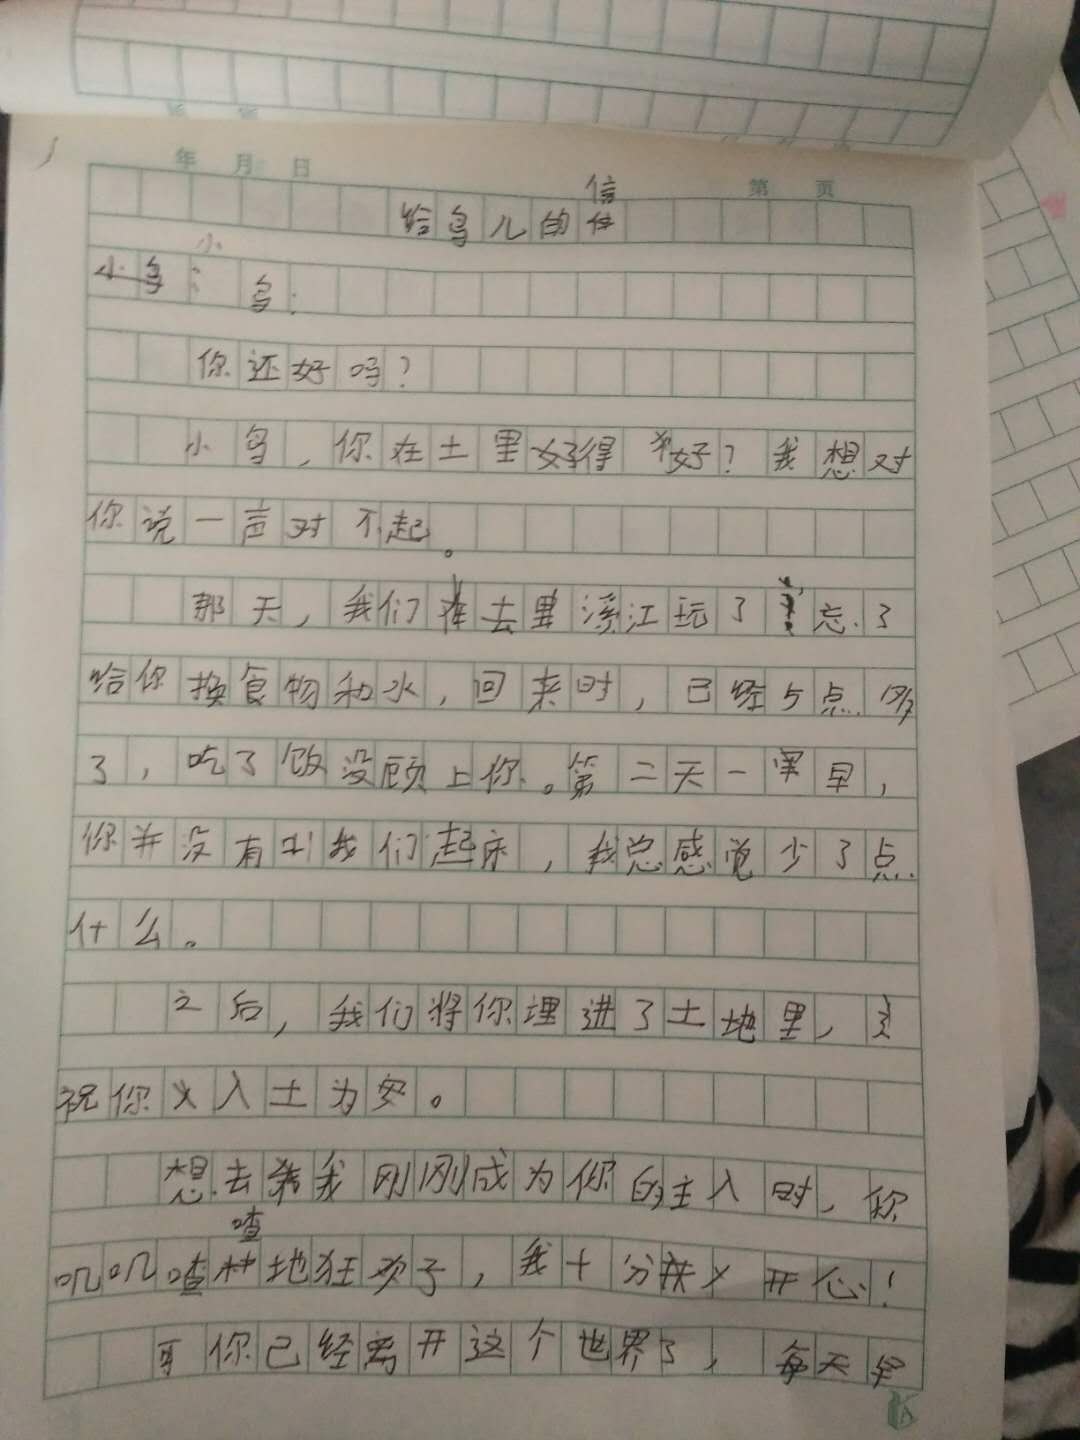 年 月 日
第 页
给鸟儿的信
小鸟：
你还好吗？
小鸟，你在土里好得好？我想对
你说一声对不起。
那天，我们去里溪江玩了忘了
给你换食物和水，回来时，已经5点
了，吃了饭没顾上你。第二天一早，
你并没有叫我们起床，我总感觉少了点
什么。
之后，我们将你埋进了土地里，
祝你入土为安。
想去我刚刚成为你的主人时，你
叽叽喳喳地狂欢了，我十分开心！
可你已经离开这个世界了，每天早